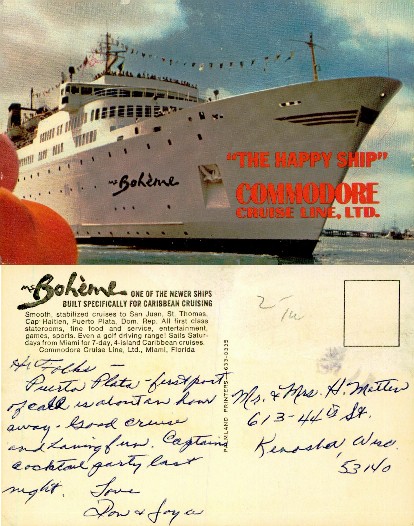 "THE HAPPY SHIP"
COMMODORE
CRUISE LINE, LTD.
ms Bohème
ms Bohème ONE OF THE NEWER SHIPS
BUILT SPECIFICALLY FOR CARIBBEAN CRUISING
Smooth, stabilized cruises to San Juan, St. Thomas,
Cap Haitien, Puerto Plata, Dom. Rep. All first class
staterooms, fine food and service, entertainment,
games, sports. Even a golf driving range! Sails Satur-
days from Miami for 7-day, 4-island Caribbean cruises.
Commodore Cruise Line, Ltd., Miami, Florida
Hi Folks —
Puerto Plata - first port
of call is about an hour
away - Good cruise
and having fun. Captains
cocktail party last
night. Love
Don & Joyce
Mr. & Mrs. H. Matter
613-44th St.
Kenosha, Wisc.
53140